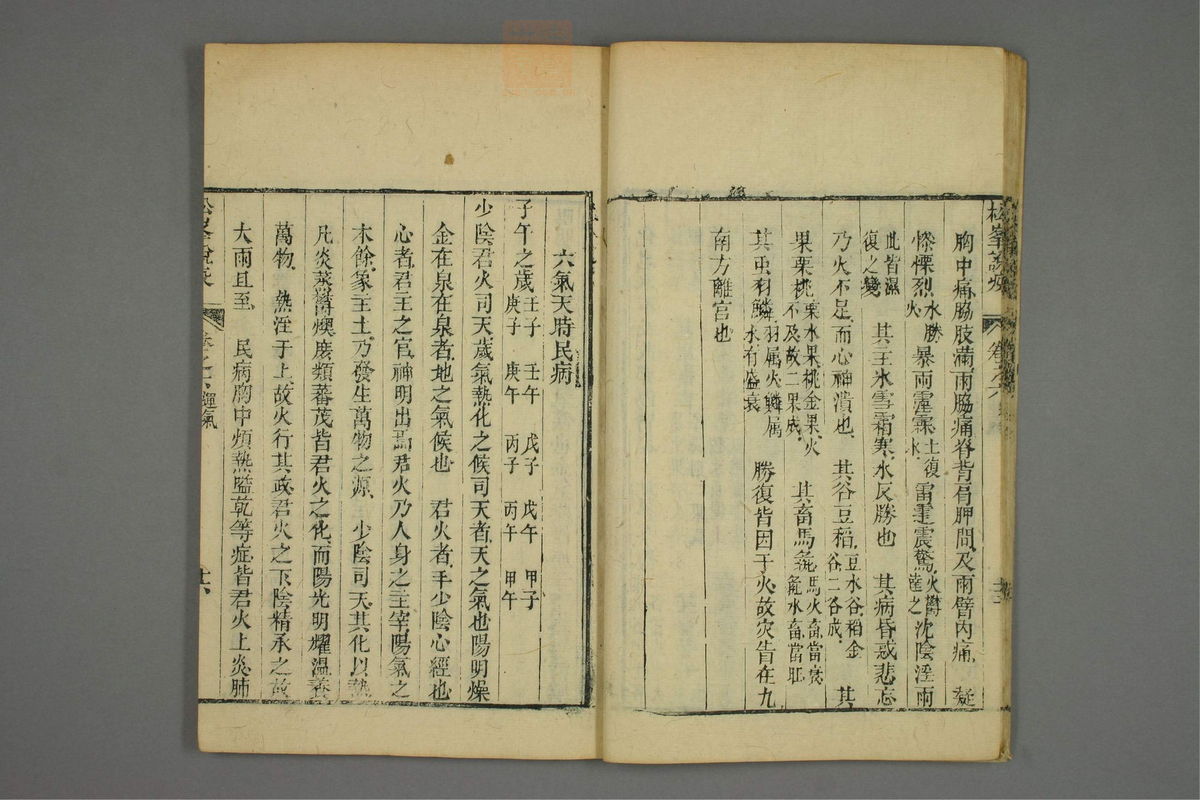 松峯說疫
卷之六
胸中痛脇肢滿兩脇痛脊背肩胛間及兩臂內痛 凝
慘慄烈水勝火 暴雨霪霖土復水 雷霆震驚火鬱達之 沈陰淫雨
此皆濕復之變 其主氷雪霜寒水反勝也 其病昏惑悲忘
乃火不足而心神潰也 其谷豆稻豆水谷稻金谷二谷成 其
果栗桃栗水果桃金果火不及故二果成 其畜馬彘馬火畜當衰彘水畜當旺
其虫羽鱗羽属火鱗属水有盛衰 勝復皆因于火故灾眚在九
南方離宮也
六氣天時民病
子午之歲壬子 壬午 戊子 戊午 甲子庚子 庚午 丙子 丙午 甲午
少陰君火司天歲氣熱化之候司天者天之氣也陽明燥
金在泉在泉者地之氣候也 君火者手少陰心經也
心者君主之官神明出焉君火乃人身之主宰陽氣之
木餘象主土乃發生萬物之源 少陰司天其化以熱
凡炎蒸鬱燠庶類蕃茂皆君火之化而陽光明耀溫養
萬物 熱淫于上故火行其政君火之下陰精承之故
大雨且至 民病胸中煩熱嗌乾等症皆君火上炎肺
松峯說疫
運氣